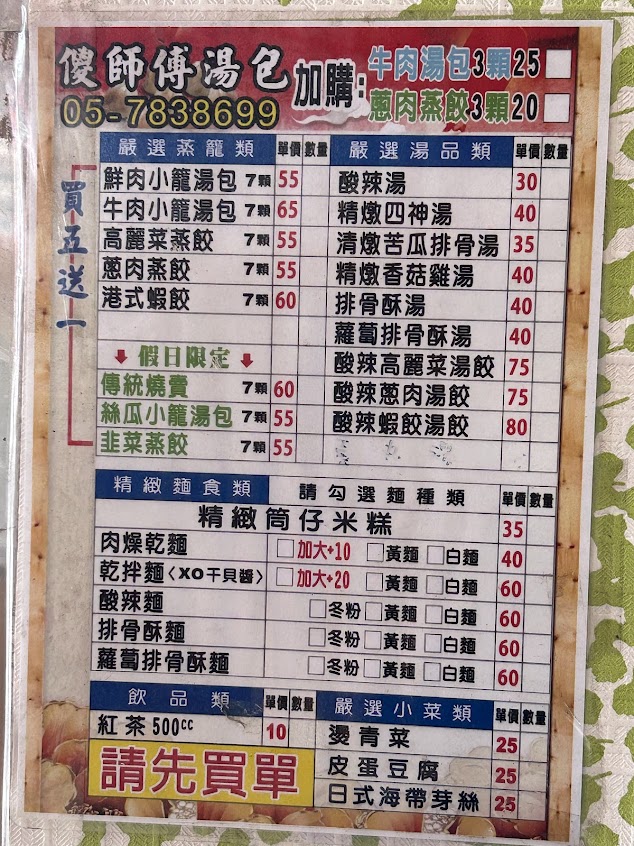 傻師傅湯包
05-7838699
加購:
牛肉湯包3顆25
蔥肉蒸餃3顆20
買五送一
嚴選蒸籠類 單價 數量
鮮肉小籠湯包 7顆 55
牛肉小籠湯包 7顆 65
高麗菜蒸餃 7顆 55
蔥肉蒸餃 7顆 55
港式蝦餃 7顆 60
假日限定
傳統燒賣 7顆 60
絲瓜小籠湯包 7顆 55
韭菜蒸餃 7顆 55
嚴選湯品類 單價 數量
酸辣湯 30
精燉四神湯 40
清燉苦瓜排骨湯 35
精燉香菇雞湯 40
排骨酥湯 40
蘿蔔排骨酥湯 40
酸辣高麗菜湯餃 75
酸辣蔥肉湯餃 75
酸辣蝦餃湯餃 80
精緻麵食類 請勾選麵種類 單價 數量
精緻筒仔米糕 35
肉燥乾麵 加大+10 黃麵 白麵 40
乾拌麵〈XO干貝醬〉 加大+20 黃麵 白麵 60
酸辣麵 冬粉 黃麵 白麵 60
排骨酥麵 冬粉 黃麵 白麵 60
蘿蔔排骨酥麵 冬粉 黃麵 白麵 60
飲品類 單價 數量
紅茶500cc 10
請先買單
嚴選小菜類 單價 數量
燙青菜 25
皮蛋豆腐 25
日式海帶芽絲 25